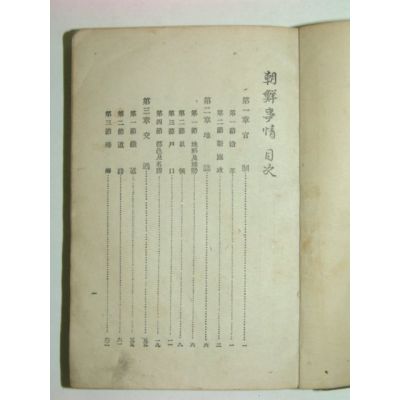 朝鮮事情目次
第一章 官制 一
第一節 沿革 一
第二節 新施政 二
第二章 地誌 六
第一節 地形及地勢 六
第二節 氣候 八
第三節 戶口 一一
第四節 都邑及名勝 一九
第三章 交通
第一節 鐵道
第二節 道路 六一
第三節